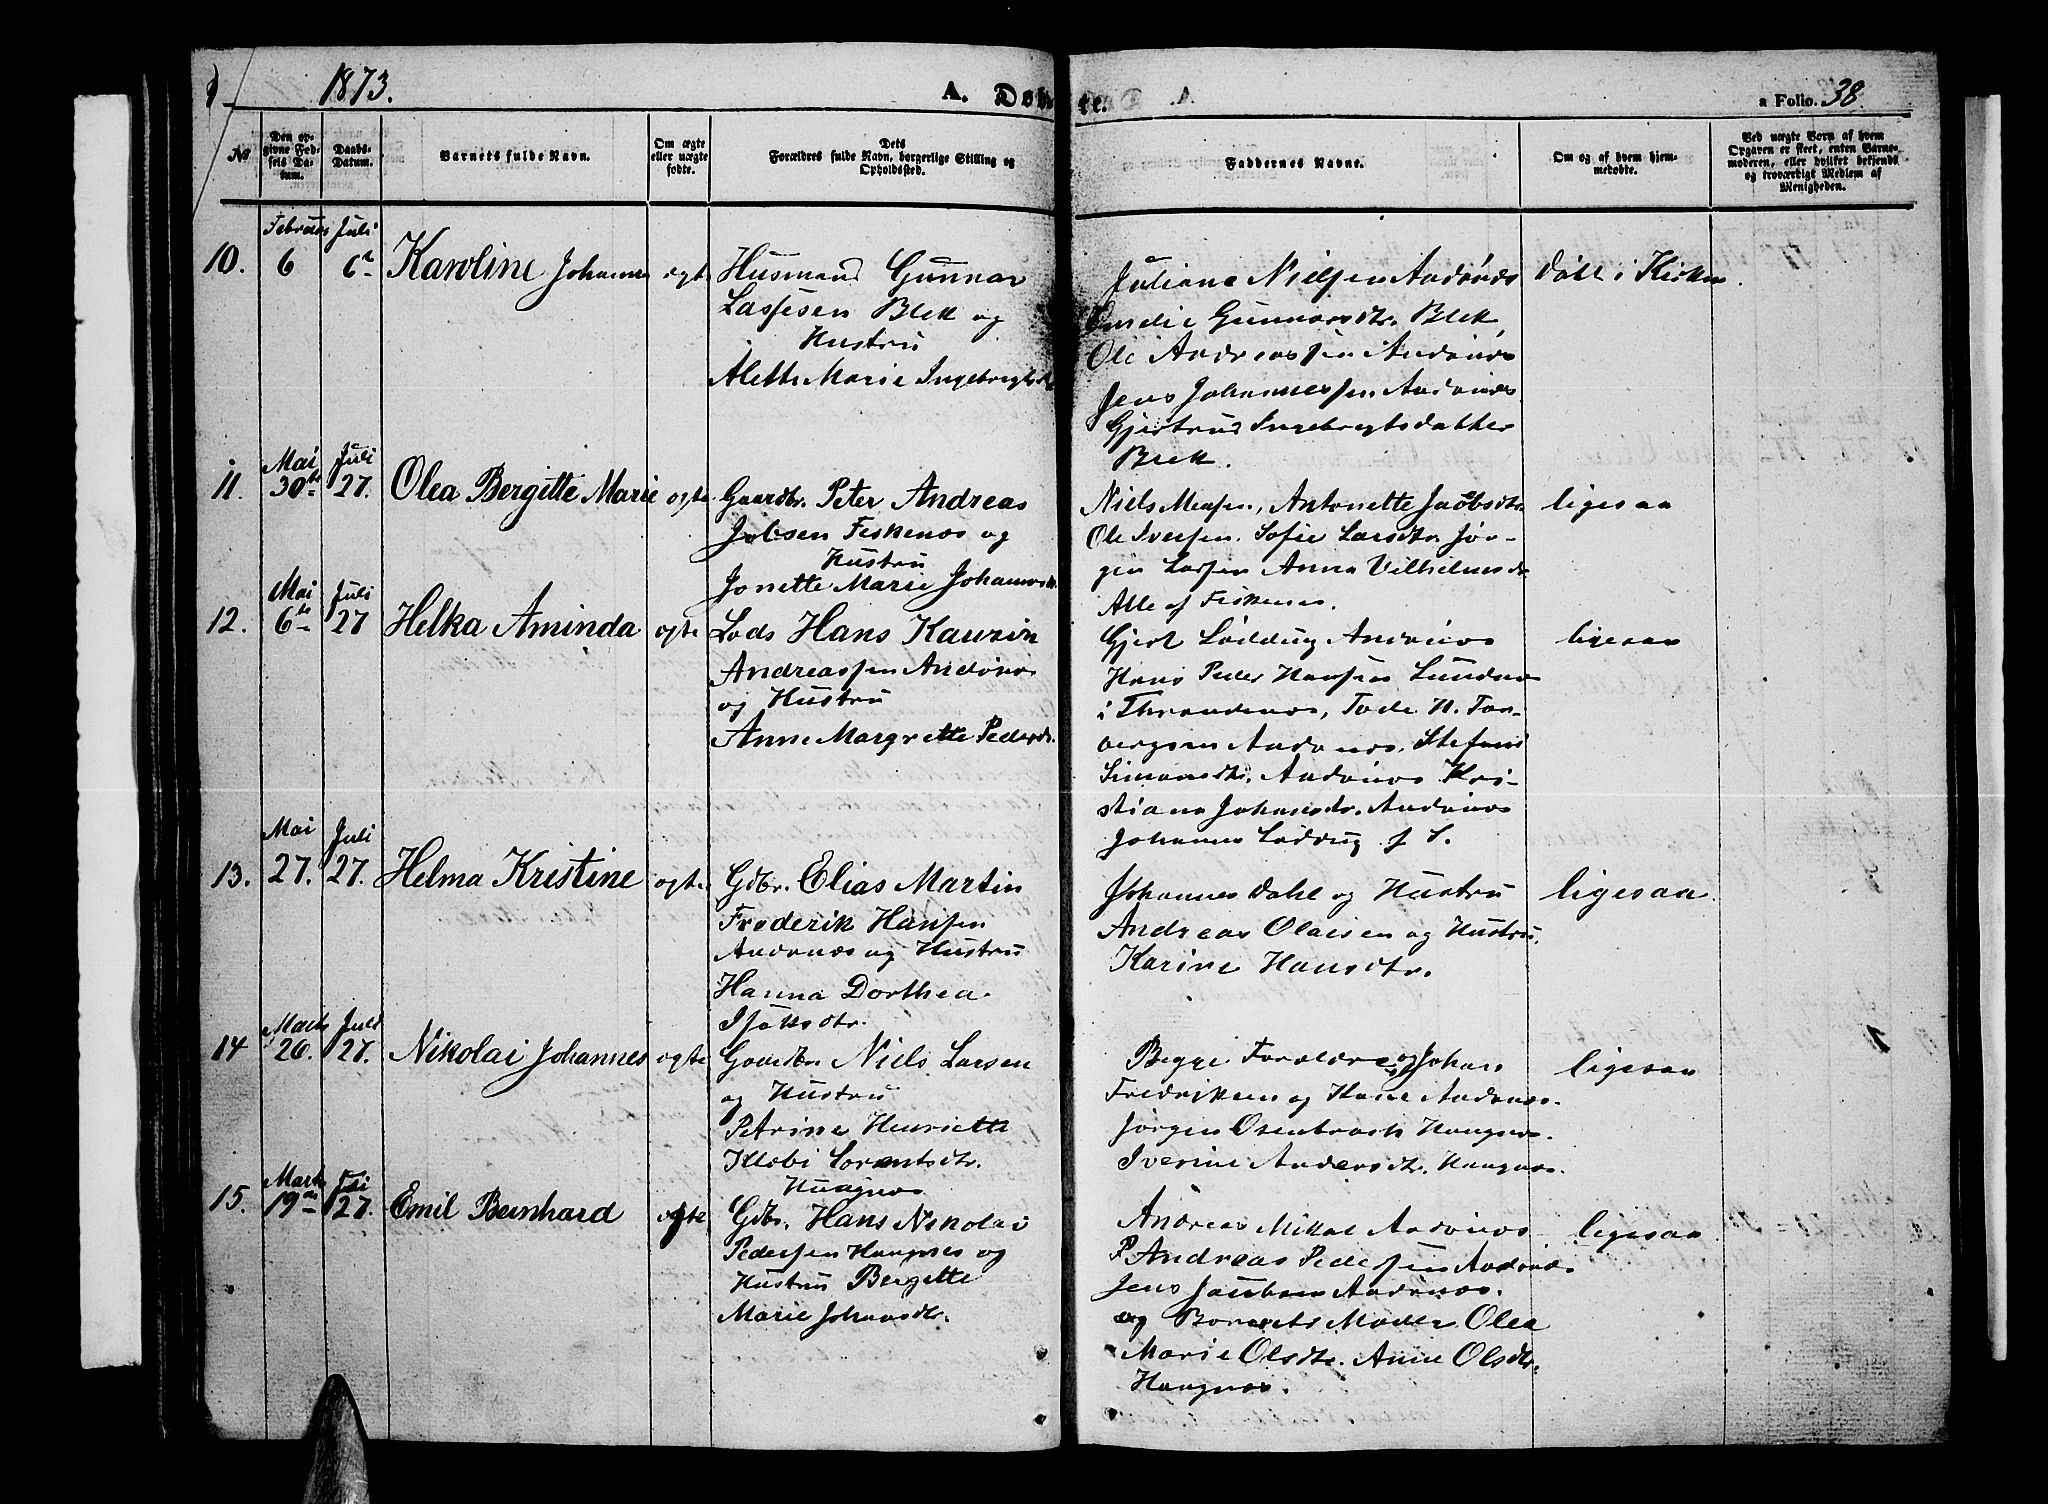 1873.
A. Døbte.
a Folio. 38.
No
Den opgivne Fødsels Datum.
Daabs-Datum.
Barnets fulde Navn.
Om ægte eller uægte fødte.
Dets Forældres fulde Navn, borgerlige Stilling og Opholdssted.
Faddernes Navne.
Om og af hvem hjemmedøbte.
Ved uægte Børn af hvem Opgaven er skeet, enten Barnemoderen, eller hvilket bekjendt og troværdigt Medlem af Menigheden.
Februar Juli
10. 6 6te Karoline Johanna ægte
Husmand Gunnar
Lassesen Blek og
Hustru
Aletth Marie Ingebregtsdtr
Juliane Nielsen Andønæs
Gunnarsdtr. Blek
Ole Andreassen Andønæs
Jens Johannessen Andønæs
Gjertrud Ingebregtsdatter
Blek.
Døbt i Kirken.
Mai Juli
11. 30te 27. Olea Bergitte Marie ægte
Gaardbr. Peter Andreas
Jakobsen Fiskenæs og
Hustru
Jonette Marie Johannesdtr.
Niels Monsen, Antonette Jacobsdtr.
Ole Iversen. Sofie Larsdtr. Jør-
gen Larsen Anna Vilhelmsdtr
Alle af Fiskenes.
ligesaa
Mai Juli
12. 6te 27 Helka Aminda ægte
Lods Hans Kaurin
Andreassen Andønæs
og Hustru
Anne Margrette Pedersdtr.
Gjert Lødding Andønæs
Hans Peder Hansen Lundenes
i Throndenæs, Tode H. Tor-
bergsen Andønæs. Stefani
Simonsdtr. Andønæs Kri-
stiana Johansdtr. Andønæs
Johannes Lødding f. S.
ligesaa
Mai Juli
13. 27. 27. Helma Kristine ægte
Gdbr. Elias Martin
Frederik Hansen
Andønæs og Hustru
Hanna Dorthea
Isaksdtr.
Johannes Dahl og Hustru
Andreas Olaisen og Hustru.
Karine Hansdtr.
ligesaa.
Marts Juli
14 26. 27. Nikolai Johannes ægte
Gaardbr. Niels Larsen
og Hustru
Petrine Henriette
Klæbi Lorentsdtr.
Haugnæs
Begge Forældre og Johan
Fredriksen og Kone Andønæs.
Jørgen Osenbroch Haugnæs.
Iverine Andersdtr. Haugnæs.
ligesaa
Marts Juli
15. 19de 27. Emil Bernhard ægte
Gdbr. Hans Nikolai
Pedersen Haugnes og
Hustru Bergitte
Marie Johansdtr.
Andreas Mikal Andønæs
P. Andreas Pedersen Andønæs
Jens Jacobsen Andønæs.
og Barnets Moder Olea
Marie Olsdtr. Anne Olsdtr.
Haugnæs.
ligesaa